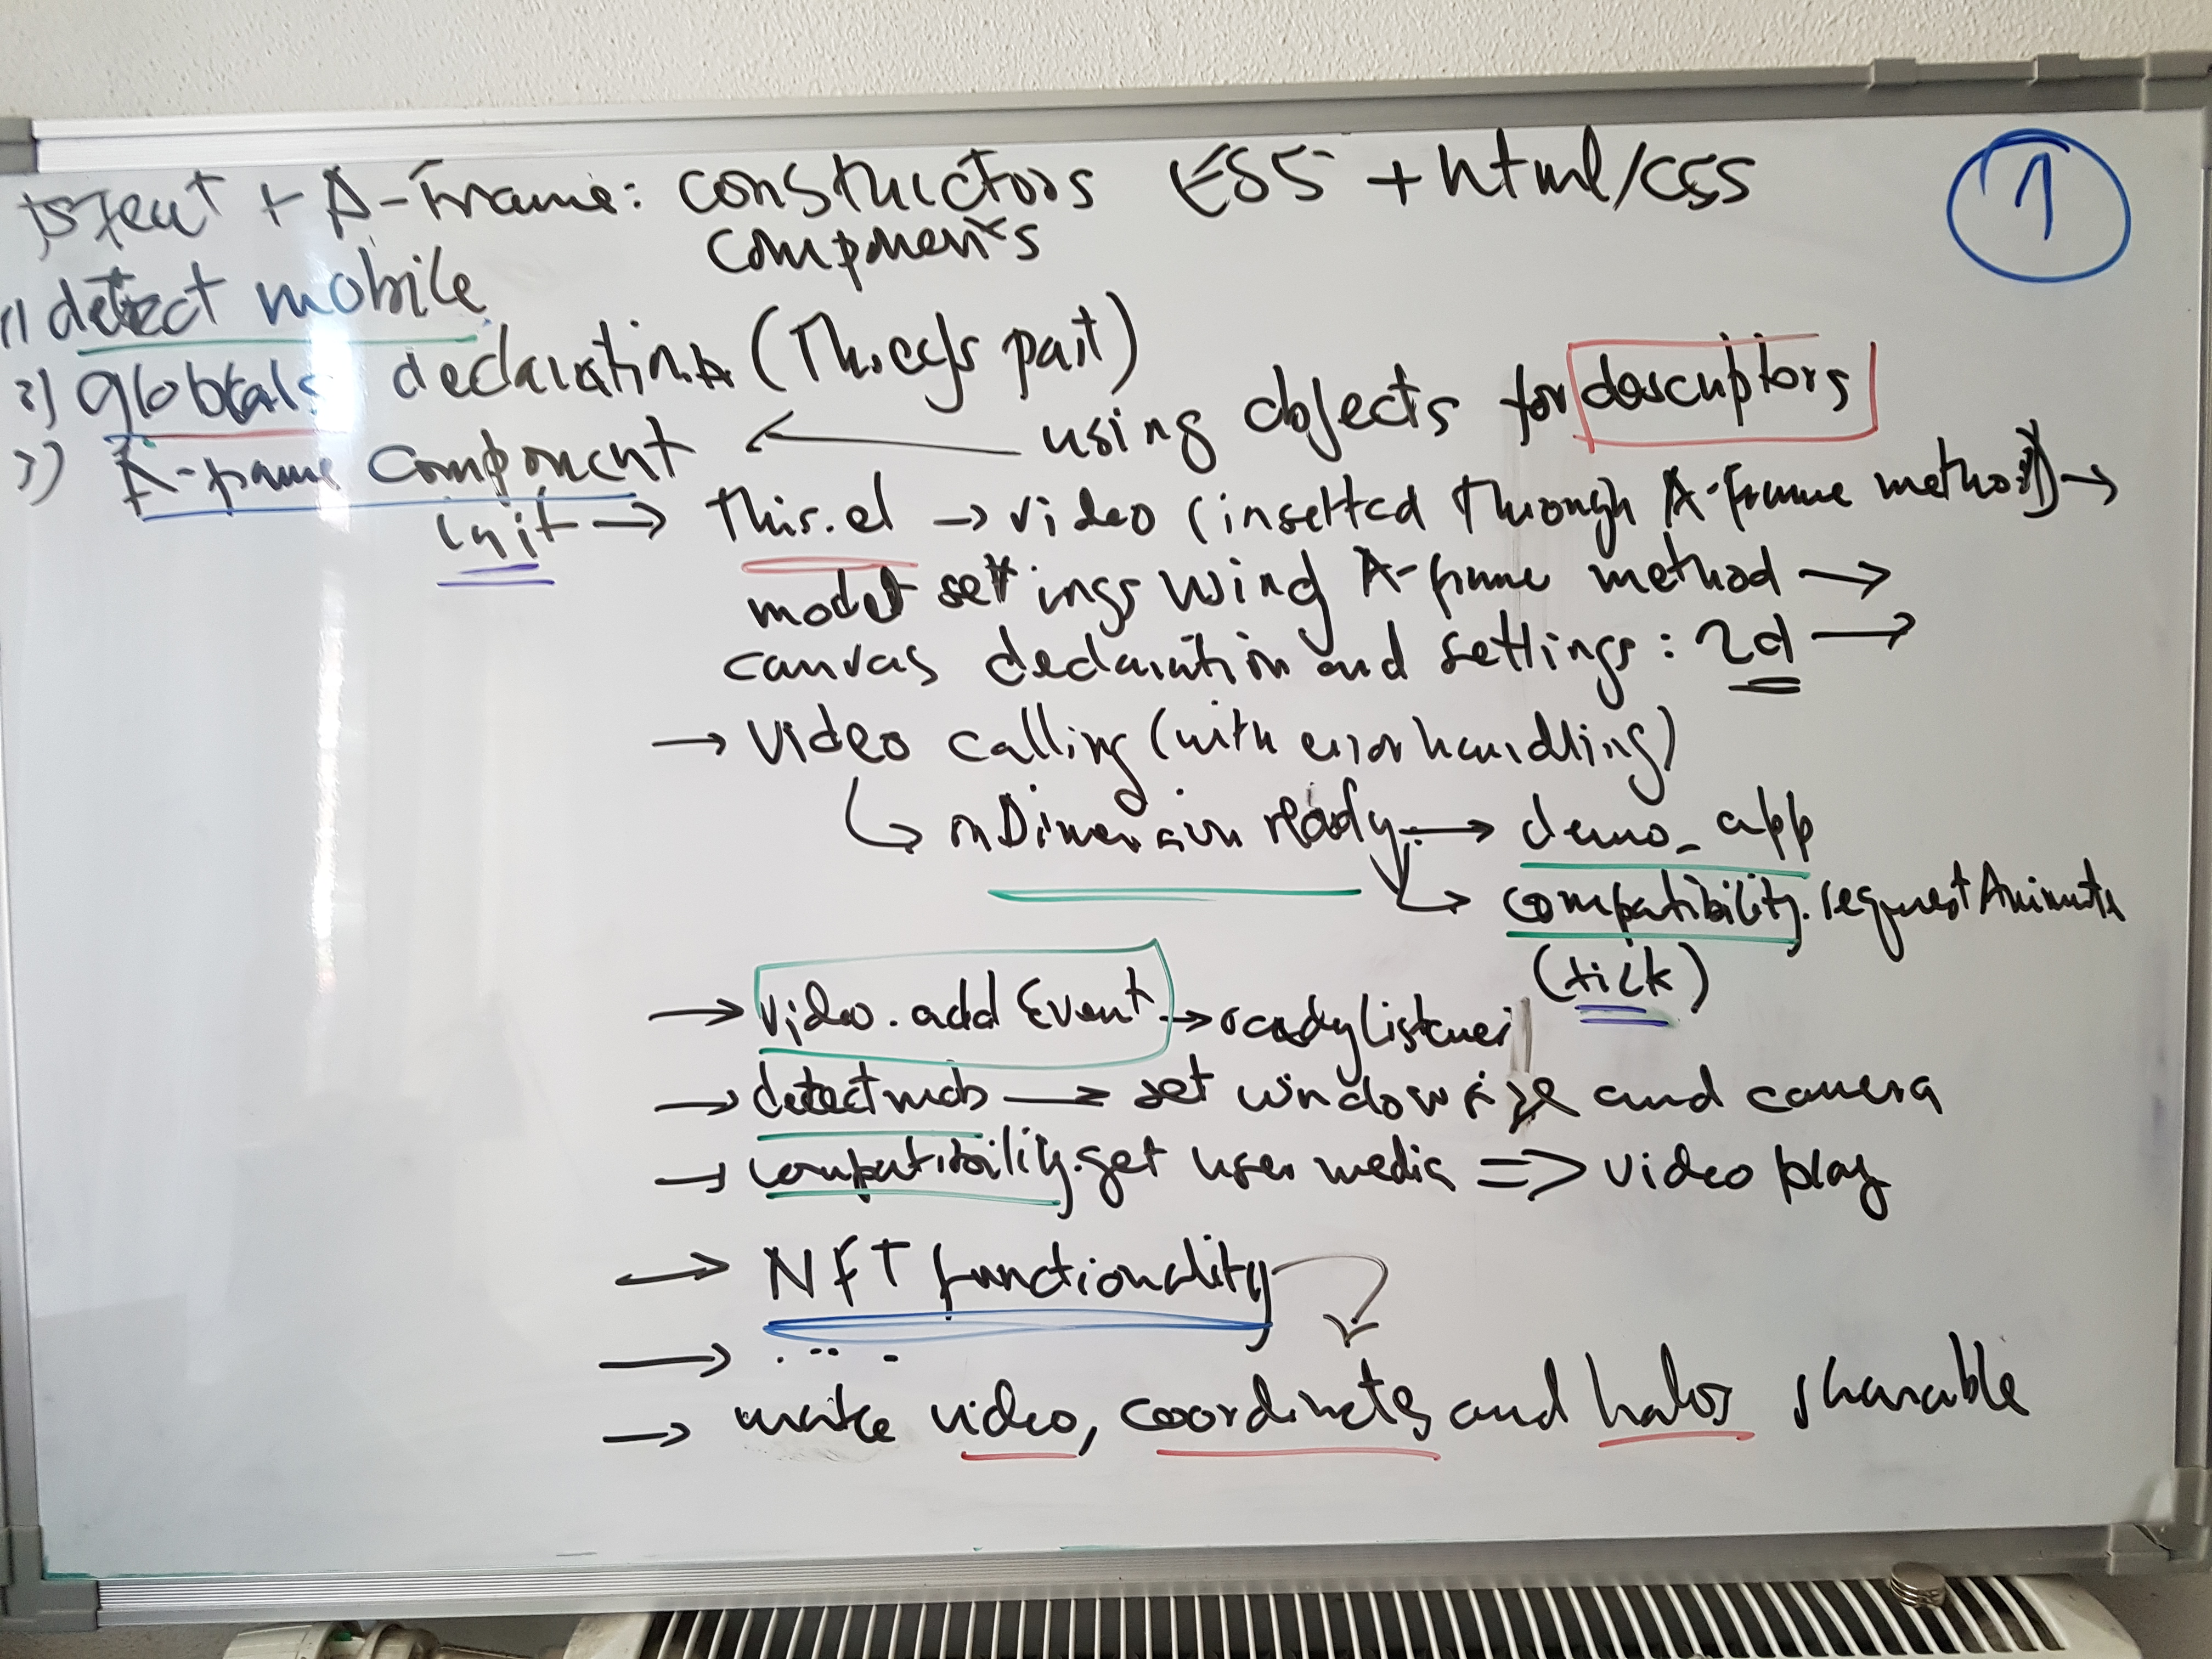 jsfeat + A-Frame: constructors ES5 + html/css
components
1
1) detect mobile
2) globals declaration (Threejs part)
using objects for descriptors
3) A-frame component
init → this.el → video (inserted through A-Frame method) →
model settings using A-frame method →
canvas declaration and settings: 2d →
→ video calling (with error handling)
onDimension ready → demo_app
compatibility.requestAnimate
(tick)
→ video.add Event → readyListener
→ detectmob → set window size and camera
→ compatibility.get user media => video play
→ NFT functionality
→ ....
→ make video, coordinates and halos sharable